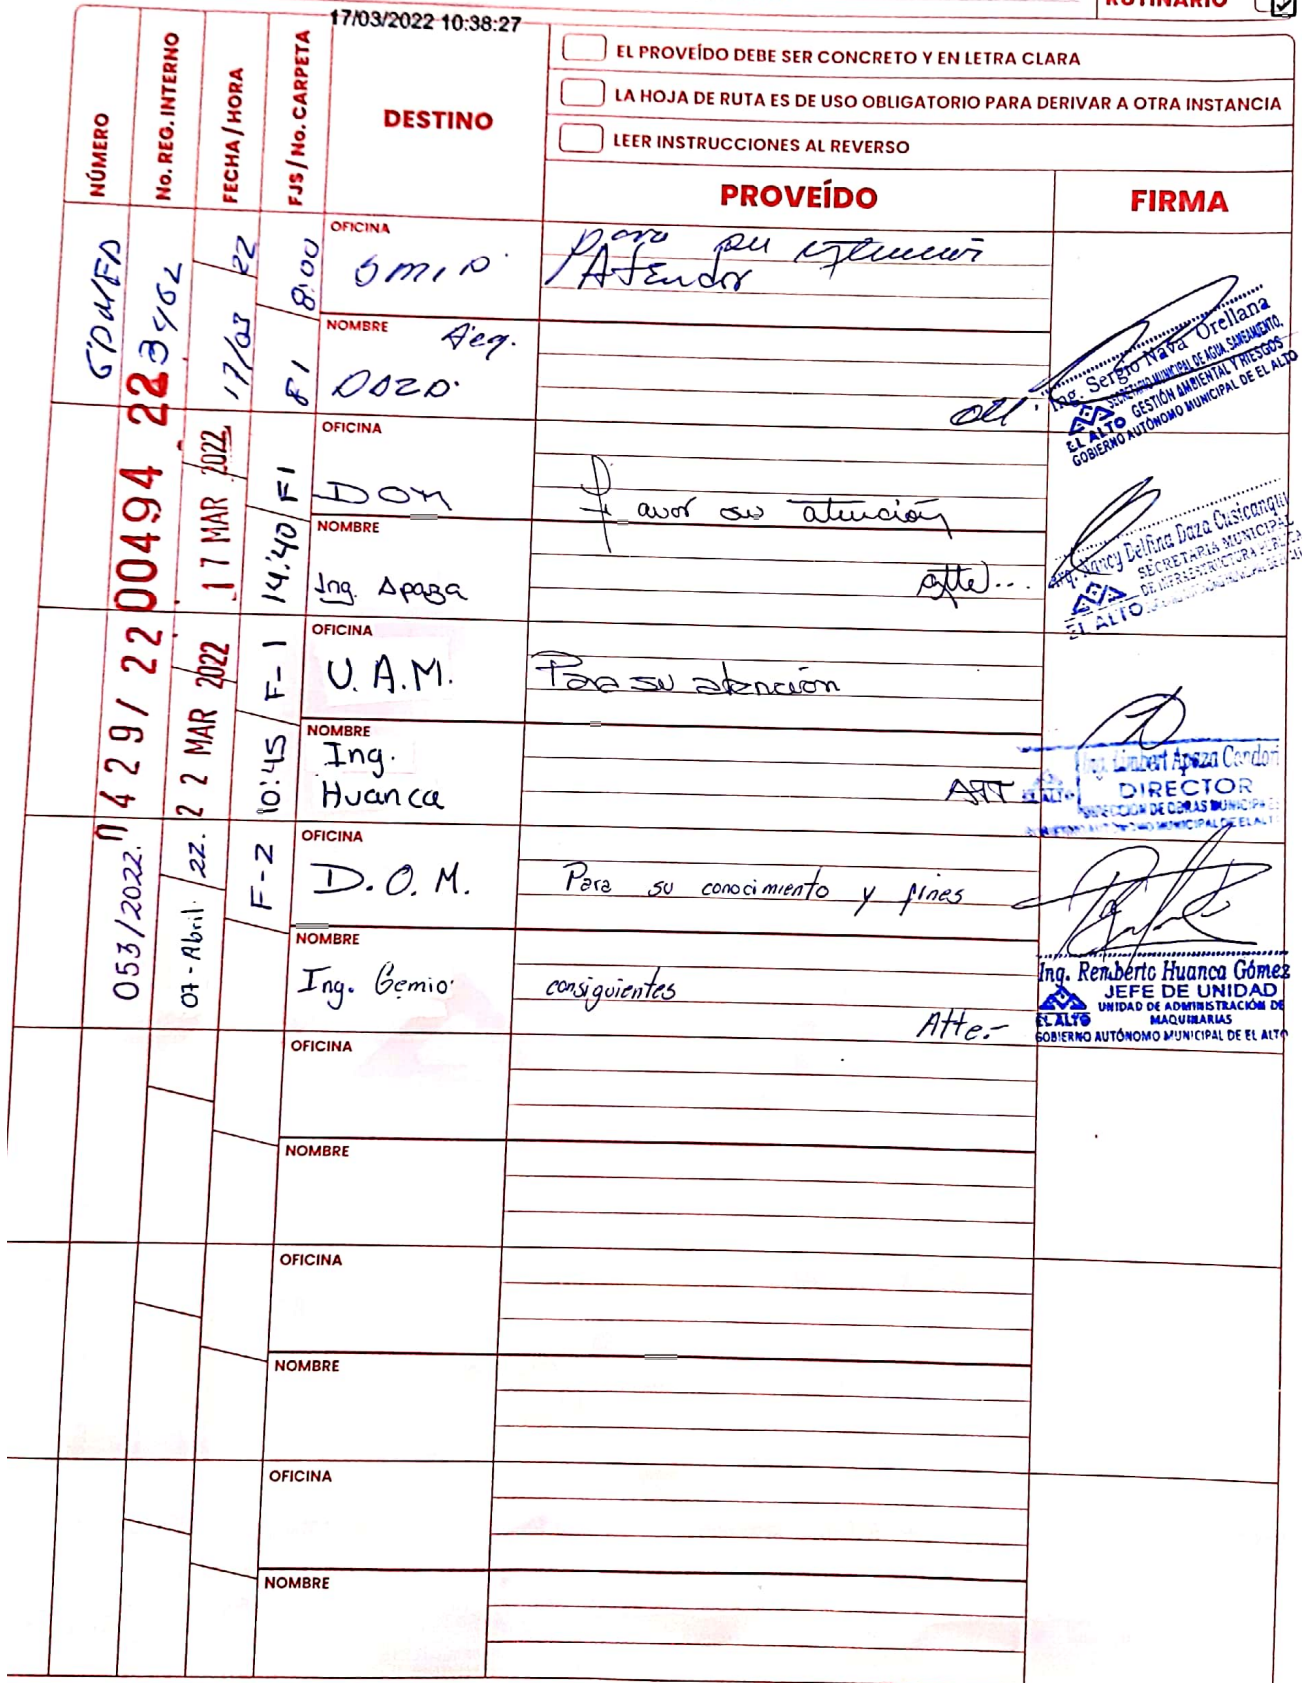 RUTINARIO
17/03/2022 10:38:27
EL PROVEÍDO DEBE SER CONCRETO Y EN LETRA CLARA
LA HOJA DE RUTA ES DE USO OBLIGATORIO PARA DERIVAR A OTRA INSTANCIA
LEER INSTRUCCIONES AL REVERSO
NÚMERO
No. REG. INTERNO
FECHA/HORA
FJS/No. CARPETA
DESTINO
PROVEÍDO
FIRMA
22
17/03 22
8:00
F1
OFICINA
NOMBRE
Arq.
para su
Ing. Sergio Nava Orellana
SECRETARIO MUNICIPAL DE AGUA, SANEAMIENTO,
GESTIÓN AMBIENTAL Y RIESGOS
EL ALTO
GOBIERNO AUTÓNOMO MUNICIPAL DE EL ALTO
00494
17 MAR 2022
14:40 F1
OFICINA
DOM
NOMBRE
Ing. Apaza
Favor su atención
atte...
Arq. Nancy Delfina Daza Cusicanqui
SECRETARIA MUNICIPAL
DE INFRAESTRUCTURA PÚBLICA
EL ALTO
429/22
22 MAR 2022
10:45 F-1
OFICINA
U.A.M.
NOMBRE
Ing.
Huanca
Para su atención
ATT
Ing. Limbert Apaza Condori
DIRECTOR
DIRECCIÓN DE OBRAS MUNICIPALES
EL ALTO
053/2022.
07-Abril 22.
F-2
OFICINA
D.O.M.
NOMBRE
Ing. Gemio
Para su conocimiento y fines
consiguientes
Atte.-
Ing. Remberto Huanca Gómez
JEFE DE UNIDAD
UNIDAD DE ADMINISTRACIÓN DE
MAQUINARIAS
EL ALTO
GOBIERNO AUTÓNOMO MUNICIPAL DE EL ALTO
OFICINA
NOMBRE
OFICINA
NOMBRE
OFICINA
NOMBRE